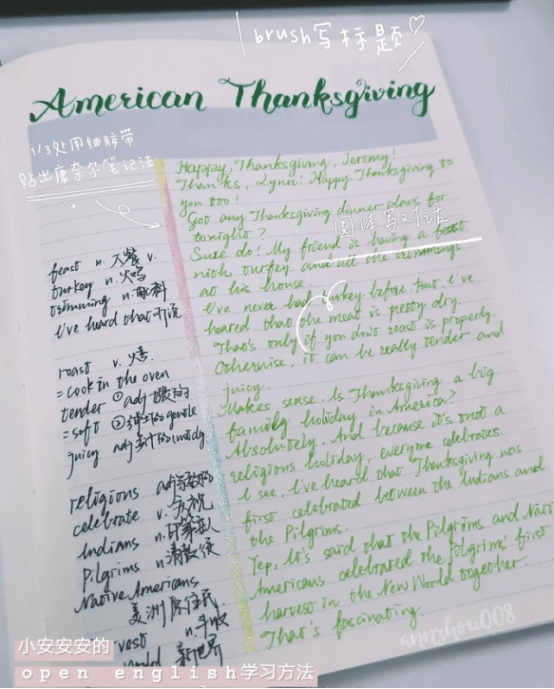 brush写标题
American Thanksgiving
1/3处用细胶带
贴出康奈尔笔记法
圆体写对话
feast n. 大餐 v.
turkey n. 火鸡
trimming n. 配料
I've heard that 听说
roast v. 烤
= cook in the oven
tender ① adj 嫩的
= soft ② gentle
juicy adj
religions adj 宗教的
celebrate v. 庆祝
Indians n. 印第安人
Pilgrims n. 清教徒
Native Americans
美洲原住民
vest n. 丰收
world 新世界
Happy Thanksgiving, Jeremy!
Thanks, Lynn! Happy Thanksgiving to
you too!
Got any Thanksgiving dinner plans for
tonight?
Sure do! My friend is having a feast
with turkey and all the trimmings
at his house.
I've never had turkey before, but I've
heared that the meat is pretty dry.
That's only if you don't roast is properly.
Otherwise, it can be really tender and
juicy.
Makes sense. Is Thanksgiving a big
family holiday in America?
Absolutely. And because it's not a
religious holiday, everyone celebrates.
I see. I've heard that Thanksgiving was
first celebrated between the Indians and
the Pilgrims.
Yep, It's said that the Pilgrims and Nati
Americans celebrated the Pilgrims' first
harvest in the New World together.
That's fascinating.
annzhou008
小安安安的
open english学习方法